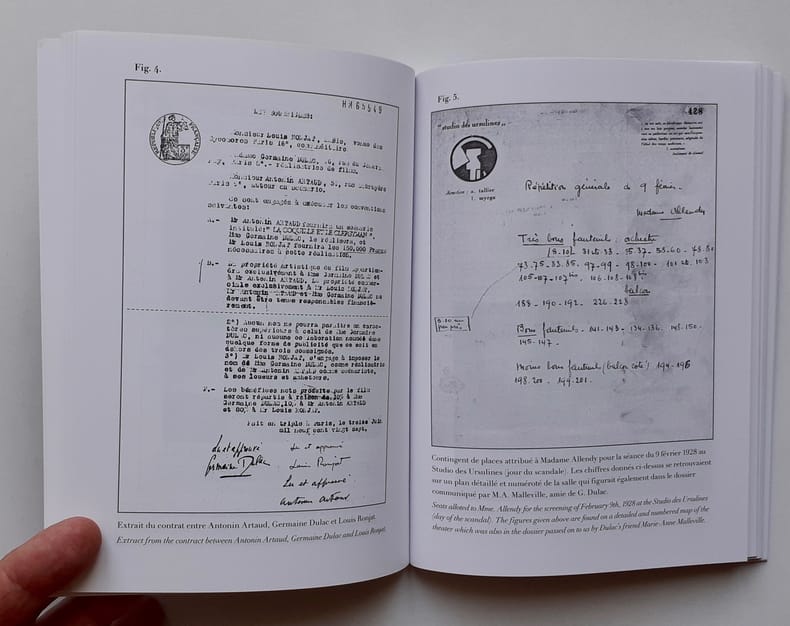 Fig. 4.
HH65549
LES SOUSSIGNES:
Monsieur Louis RONJAT, Paris, rue des
Sycomores Paris 16°, commanditaire
Madame Germaine DULAC, 46, rue du Général
Foy, Paris 8°.- réalisatrice de films.
Monsieur Antonin ARTAUD, 58, rue
Paris auteur du scénario.
Ce sont engagés à exécuter les conventions
suivantes:
A.- Mr Antonin ARTAUD fournira un scénario
intitulé: "LA COQUILLE ET LE CLERGYMAN"
Mme Germaine DULAC, le réalisera, et
Mr Louis RONJAT fournira les 150.000 Francs
nécessaires à cette réalisation.
B.- La propriété artistique du film appartien-
dra exclusivement à Mme Germaine DULAC et
à Mr Antonin ARTAUD. La propriété commer-
ciale exclusivement à Mr Louis RONJAT,
Mr Antonin ARTAUD et Mme Germaine DULAC ne
devant être tenus responsables financiè-
rement.
2°) Aucun nom ne pourra paraître en carac-
tères supérieurs à celui de Mme Germaine
DULAC, ni aucune collaboration nommée dans
quelque forme de publicité que ce soit en
dehors des trois soussignés.
3°) Mr Louis RONJAT, s'engage à imposer le
nom de Mme Germaine DULAC, comme réalisatrice
et de Mr Antonin ARTAUD comme scénariste,
à ses loueurs et acheteurs.
F.- Les bénéfices nets produits par le film
seront répartis à raison de 10% à Mme
Germaine DULAC, 10% à Mr Antonin ARTAUD
et 80% à Mr Louis RONJAT.
Fait en triple à Paris, le treize Juin
mil neuf cent vingt sept.
Lu et approuvé
Germaine Dulac
Lu et approuvé
Louis Ronjat
Lu et approuvé
Antonin Artaud
Extrait du contrat entre Antonin Artaud, Germaine Dulac et Louis Ronjat.
Extract from the contract between Antonin Artaud, Germaine Dulac and Louis Ronjat.
Fig. 5.
428
"studio des ursulines"
direction : a. tallier
l. myrga
Répétition générale du 9 février.
Madame Allendy
Très bons fauteuils : orchestre
balcon
188 - 190 - 192 - 226 - 228
Bons fauteuils - 141 - 143 - 134 - 136. 148 - 150.
145 - 147.
Moins bons fauteuils (balcon côté) 194 - 196
198. 200. 199. 201.
Contingent de places attribué à Madame Allendy pour la séance du 9 février 1928 au
Studio des Ursulines (jour du scandale). Les chiffres donnés ci-dessus se retrouvaient
sur un plan détaillé et numéroté de la salle qui figurait également dans le dossier
communiqué par M.A. Malleville, amie de G. Dulac.
Seats alloted to Mme. Allendy for the screening of February 9th, 1928 at the Studio des Ursulines
(day of the scandal). The figures given above are found on a detailed and numbered map of the
theater which was also in the dossier passed on to us by Dulac's friend Marie-Anne Malleville.